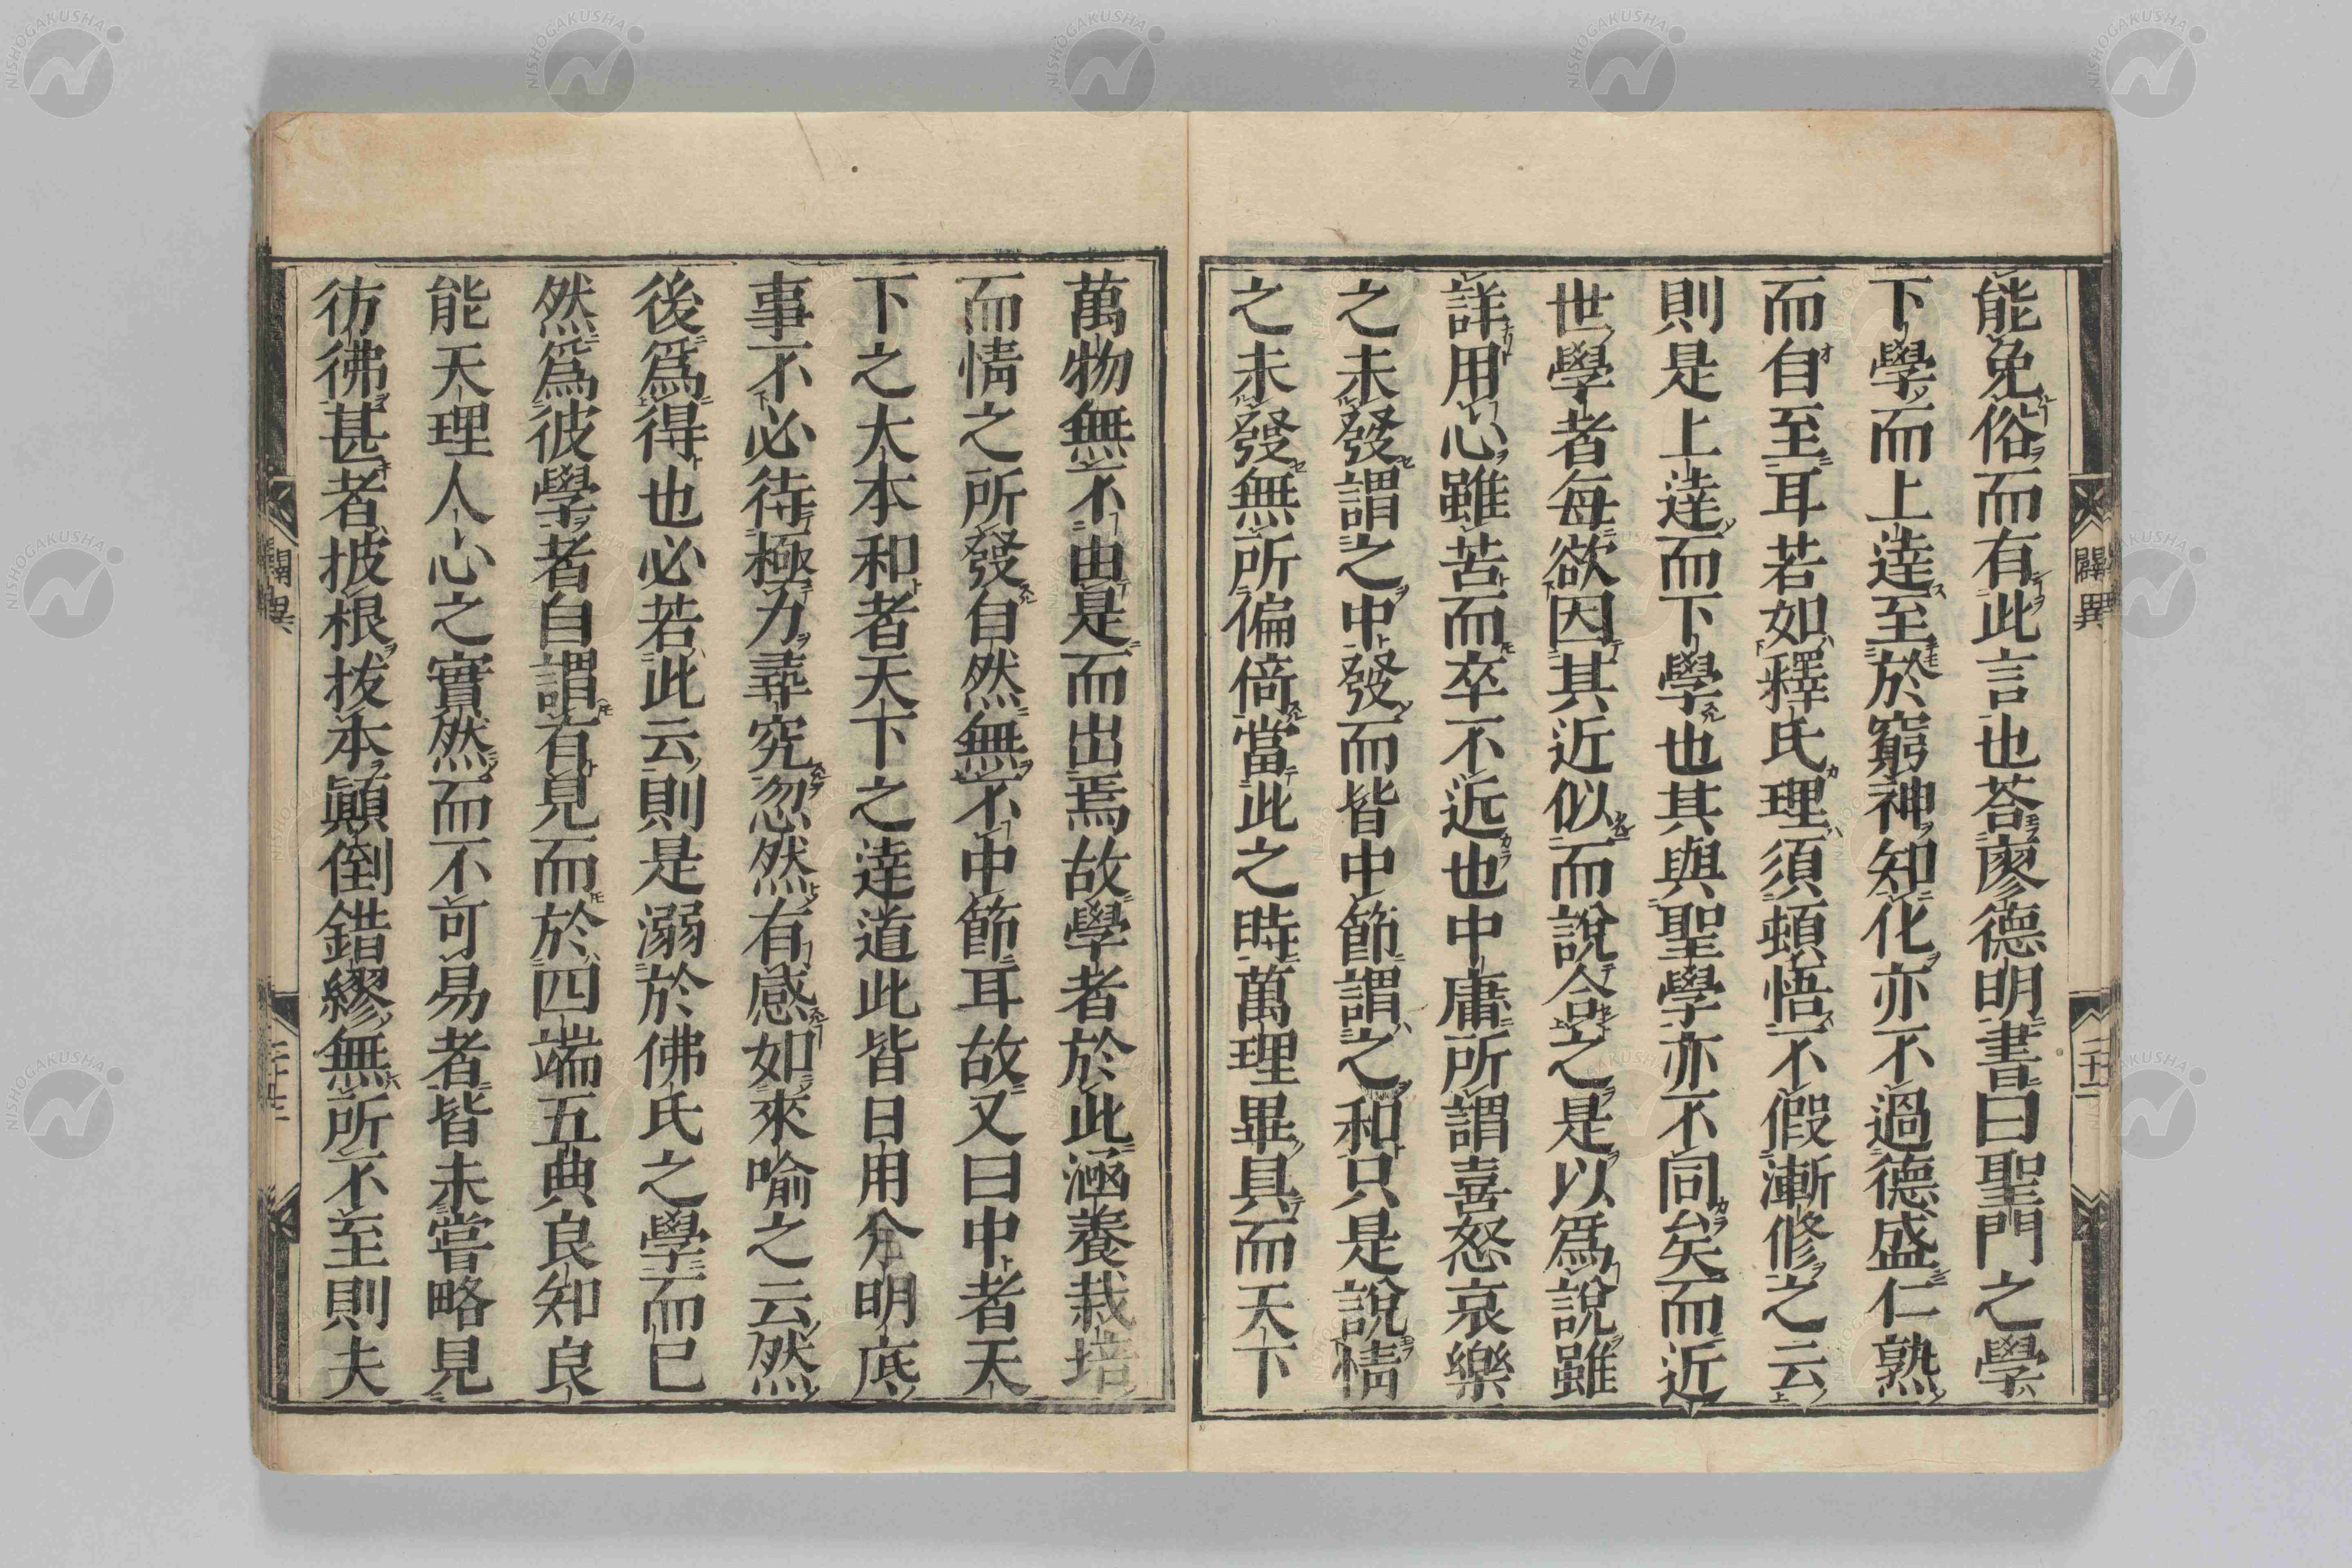 能免俗而有此言也荅廖德明書曰聖門之學
下學而上達至於窮神知化亦不過德盛仁熟
而自至耳若如釋氏理須頓悟不假漸修之云
則是上達而下學也其與聖學亦不同矣而近
世學者每欲因其近似而說合之是以爲說雖
詳用心雖苦而卒不近也中庸所謂喜怒哀樂
之未發謂之中發而皆中節謂之和只是說情
之未發無所偏倚當此之時萬理畢具而天下
萬物無不由是而出焉故學者於此涵養栽培
而情之所發自然無不中節耳故又曰中者天
下之大本和者天下之達道此皆日用分明底
事不必待極力尋究忽然有感如來喻之云然
後爲得也必若此云則是溺於佛氏之學而已
然爲彼學者自謂有見而於四端五典良知良
能天理人心之實然而不可易者皆未嘗略見
彷彿甚者披根拔本顛倒錯繆無所不至則夫
闢異
二十二
闢異
NISHOGAKUSHA